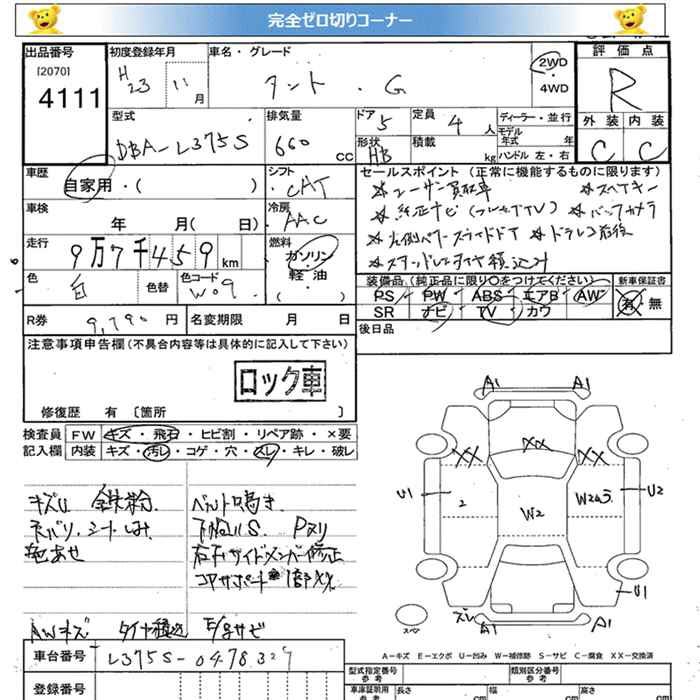 完全ゼロ切りコーナー
出品番号 初度登録年月 車名・グレード 評価点
[2070] H 23 11月 タント・G 2WD・4WD R
4111
型式 排気量 ドア 定員 ディーラー・並行 外装 内装
DBA-L375S 660cc 5 4人 モデル年式 年 C C
形状 HB 積載 kg ハンドル 左・右
車歴 シフト セールスポイント (正常に機能するものに限ります)
自家用・( ) CAT ☆ユーザー買取車 ☆スペアキー
車検 冷房 ☆純正ナビ(フルセグTV) ☆バックカメラ
年 月( 日) AAC ☆左側パワースライドドア ☆ドラレコ前後
走行 燃料 ☆スタッドレスタイヤ積込み
9万7千459km ガソリン・軽油・( )
色 色替 色コード 装備品 (純正品に限り○をつけてください) 新車保証書
白 W09 PS PW ABS エアB AW 有 無
SR ナビ TV カワ
R券 9,790円 名変期限 月 日 後日品
注意事項申告欄 (不具合内容等は具体的に記入して下さい)
ロック車
修復歴 有 〔箇所 〕
検査員 FW キズ・飛石・ヒビ割・リペア跡・×要
記入欄 内装 キズ・汚レ・コゲ・穴・スレ・キレ・破レ
キズU 鉄粉 ベルト鳴き
下回りS
色あせ 右左サイドメンバー修正
コアサポート 1部XX
AWキズ タイヤ積込
A1 A1
XX XX XX
U1 2 W2 W2 U2
U1
スレ
A1 A1
スペア
A-キズ E-エクボ U-凹み W-補修跡 S-サビ C-腐食 XX-交換済
車台番号 L375S-0478327 型式指定番号 参考 類別区分番号 参考
登録番号 車庫証明用 参考 長さ cm 幅 cm 高さ cm